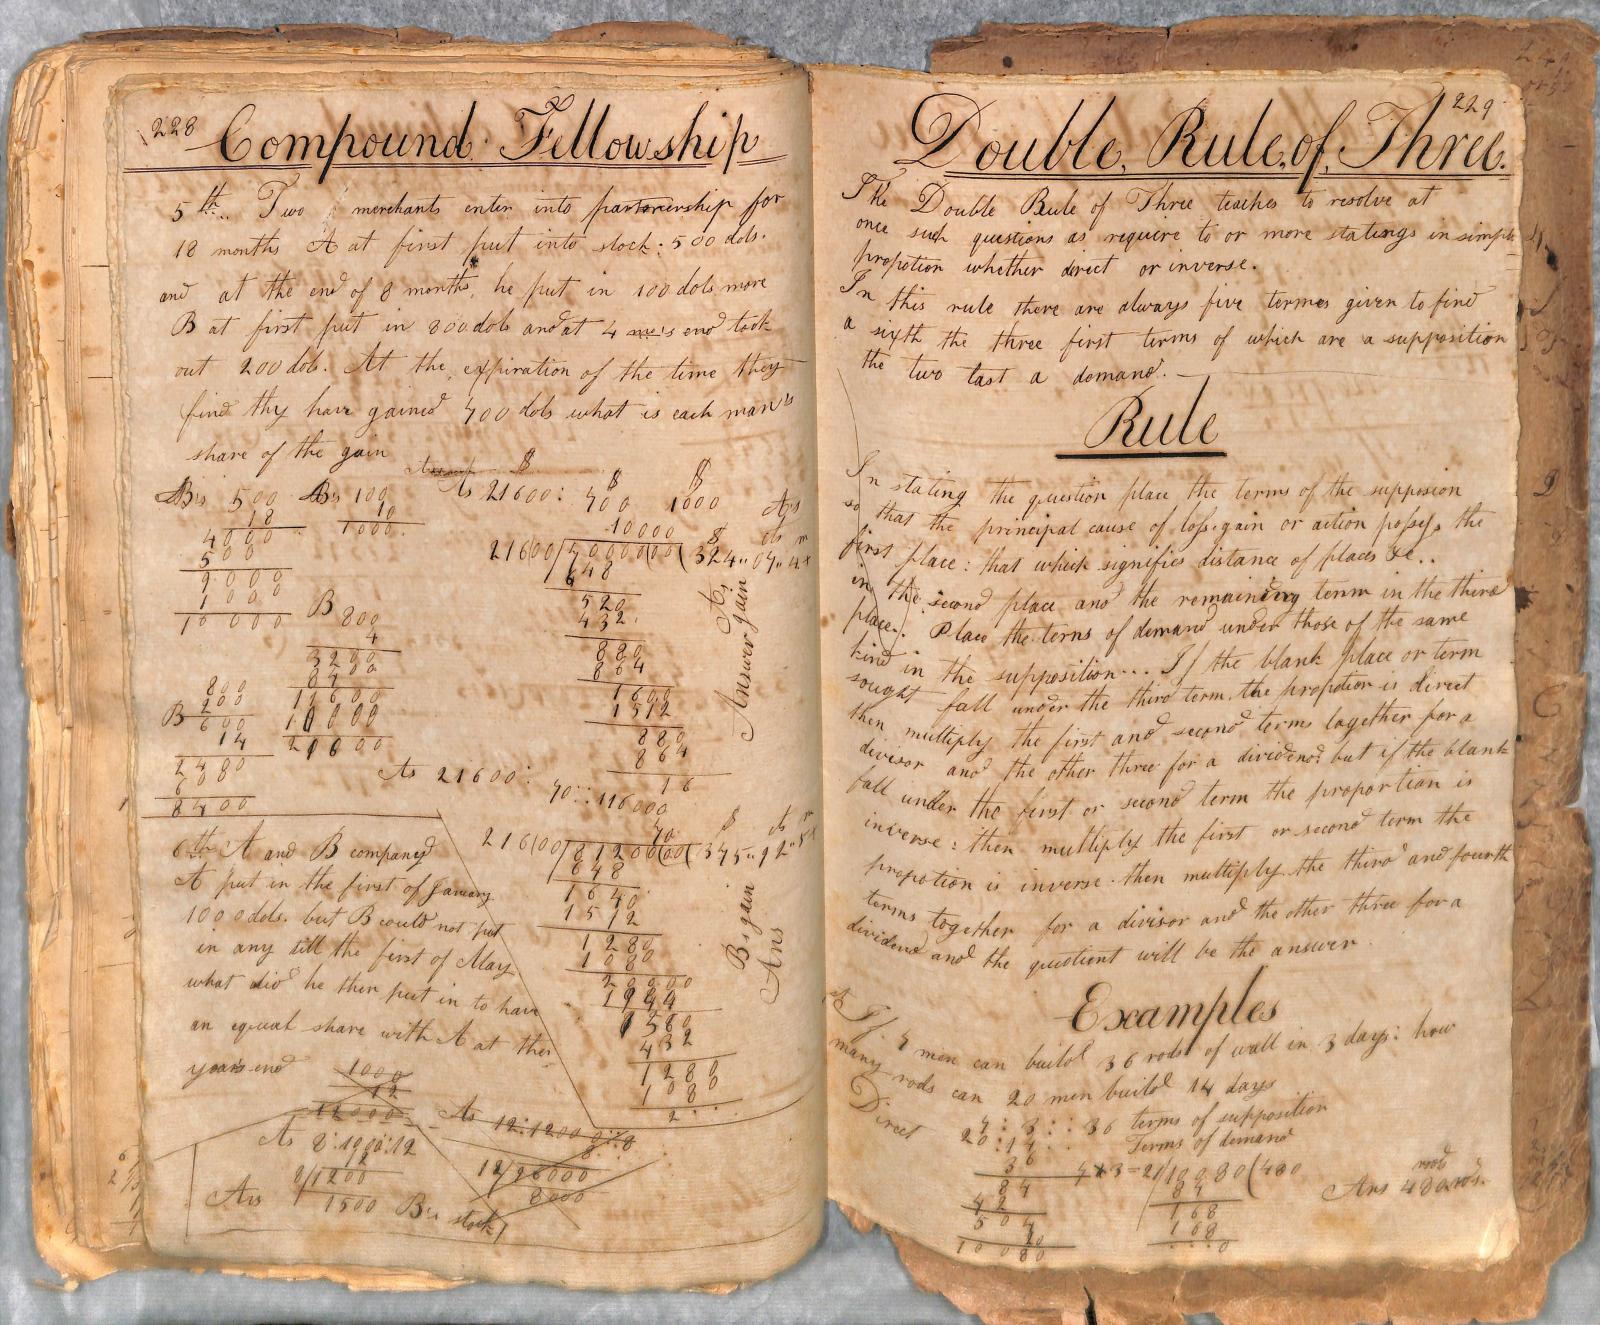 228 Compound Fellowship
5th Two merchants enter into partnership for
18 months A at first put into stock: 500 dols.
and at the end of 8 months, he put in 100 dols more
B at first put in 800 dols and at 4 mo's end took
out 200 dols. At the expiration of the time they
find thy have gained 700 dols what is each man's
share of the gain
500 100
18 10
4000 1000
500
9000
1000
10000
B
800
4
3200
8400
11600
10000
21600
800
200
B 600
14
2400
600
8400
As 21600: 700 1000
10000
216|00/70000|00( 324,,07,,4
648
520
432
880
864
1600
1512
880
864
16
A's gain
Answer
As 21600:
70:: 116000
70
216|00/81200|00( 375,,92,,5
648
1640
1512
1280
1080
20000
1944
1560
432
1280
1080
2
B's gain
Ans
6th A and B companyd
A put in the first of January
1000 dols. but B could not put
in any till the first of May
what did he then put in to have
an equal share with A at the
years end
1000
12
12000
As 12:1200 0::8
8
12/96000
8000
As 8:1000:12
12
8/1200
Ans 1500 B's stock
229
Double Rule of Three.
The Double Rule of Three teaches to resolve at
once such questions as require to or more statings in simple
propotion whether direct or inverse.
In this rule there are always five termes given to find
a sixth the three first terms of which are a supposition
the two last a demand.
Rule
In stating the question place the terms of the supposion
so that the principal cause of loss gain or action possess the
first place: that which signifies distance of places &c..
in the second place and the remaining term in the third
place. Place the terns of demand under those of the same
kind in the supposition... If the blank place or term
sought fall under the third term. the propotion is direct
then multiply the first and second terms together for a
divisor and the other three for a dividend but if the blank
fall under the first or second term the proportion is
inverse: then multiply the first or second term the
propotion is inverse. then multiply the third and fourth
terms together for a divisor and the other three for a
dividend and the quotient will be the answer.
Examples
If 7 men can build 36 rods of wall in 3 days: how
many rods can 20 men build 14 days
Direct 7:3::36 terms of supposition
20:14 Terms of demand
36
84
42
504
20
10080
7x3=21/10080(480
84
168
168
rods
Ans 480 rods.